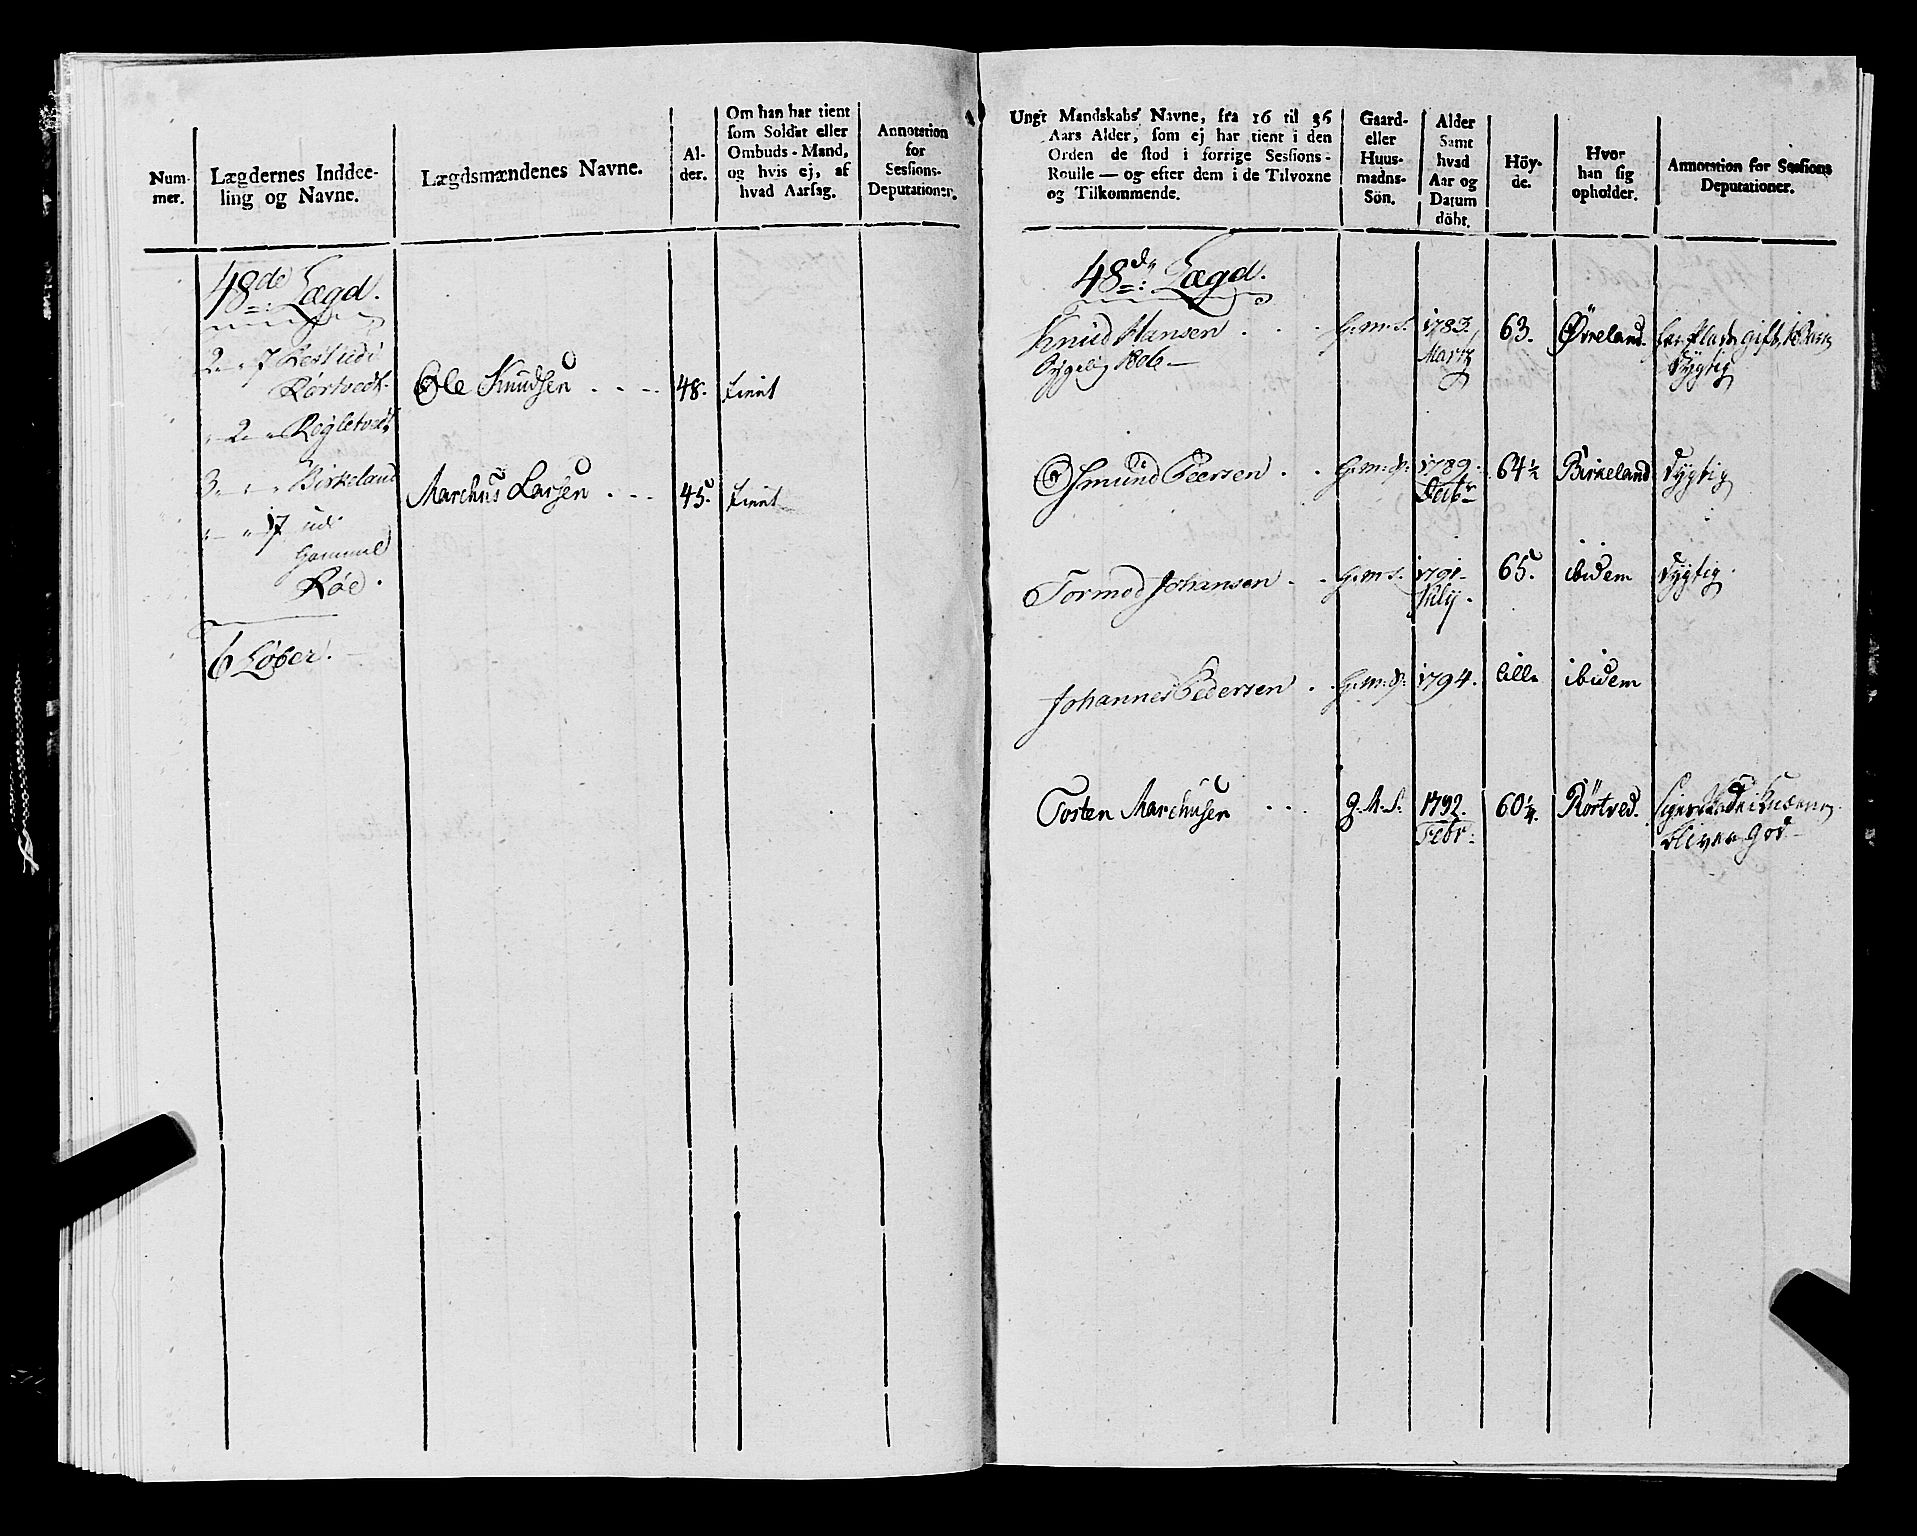 Num-
mer.
Lægdernes Inddee-
ling og Navne.
Lægdsmændenes Navne.
Al-
der.
Om han har tient
som Soldat eller
Ombuds-Mand,
og hvis ej, af
hvad Aarsag.
Annotation
for
Sessions-
Deputationer.
48de Lægd.
2 Rest udi
Rørtvedt
2 Røgletvedt
Ole Knudsen 48. tient
3 Birkeland
Marchus Larsen 45. tient
udi
Gammel
Røe.
6 Løber.
Ungt Mandskabs Navne, fra 16 til 36
Aars Alder, som ej har tient i den
Orden de stod i forrige Sessions-
Roulle — og efter dem i de Tilvoxne
og Tilkommende.
Gaard-
eller
Huus-
madns-
Sön.
Alder
Samt
hvad
Aar og
Datum
döbt.
Höy-
de.
Hvor
han sig
opholder.
Annotation for Sessions
Deputationer.
48de Lægd.
Knud Hansen G.m.S. 1783. 63. Øvreland.
1806 — Martz Dygtig
Osmund Peersen G.m.S. 1789. 64½ Birkeland Dygtig
Octbr
Tormod Johansen G.m.S. 1791. 65. ibidem Dygtig
July.
Johannes Pedersen G.m.S. 1794. lille ibidem
Tosten Marchusen G.M.S. 1792. 60¼. Rörtved.
Febr. bliver god